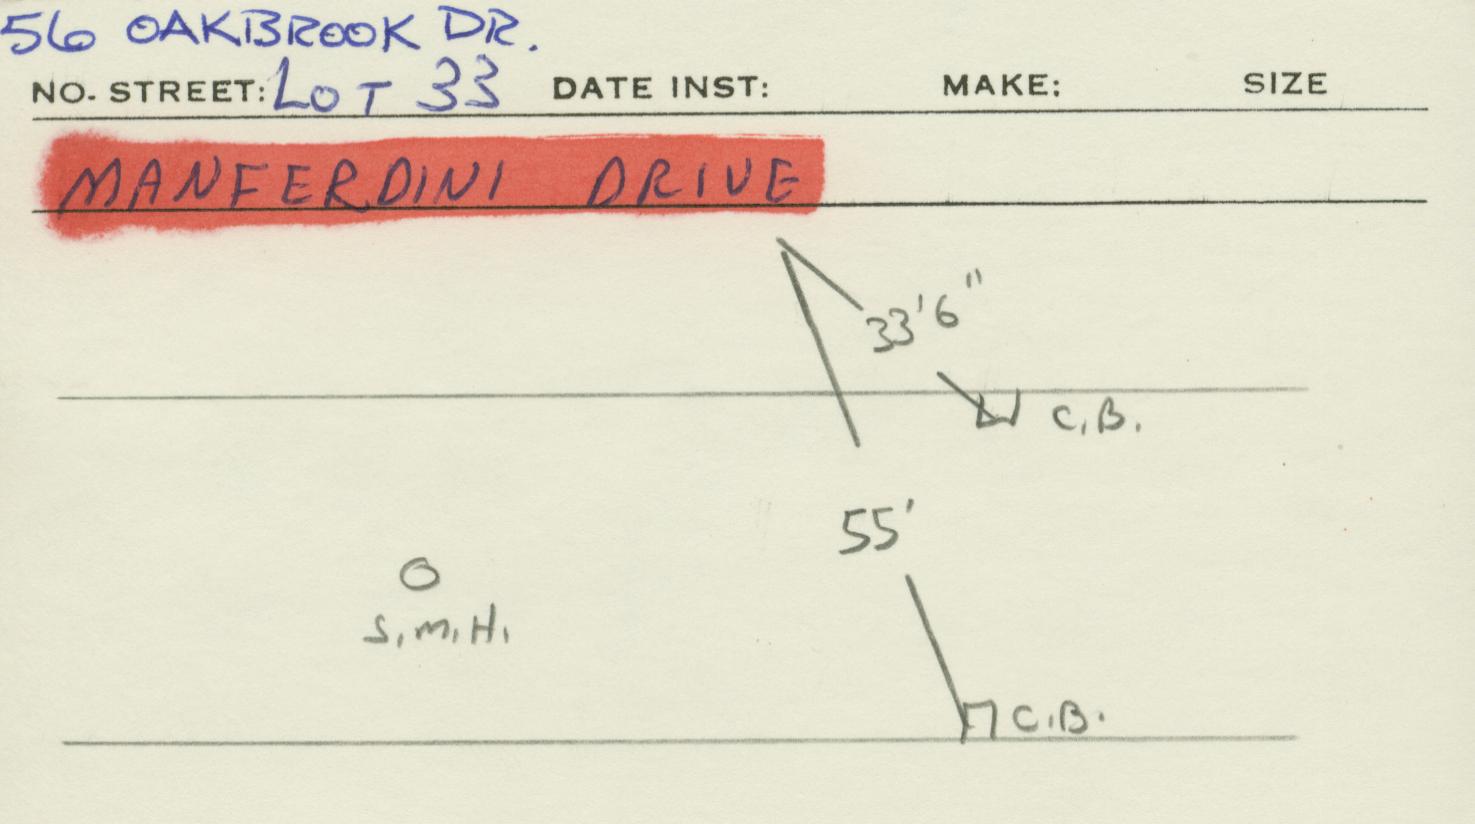 56 OAKBROOK DR.
NO. STREET: LOT 33 DATE INST: MAKE: SIZE
MANFERDINI DRIVE
33'6"
C.B.
55'
S.M.H.
C.B.